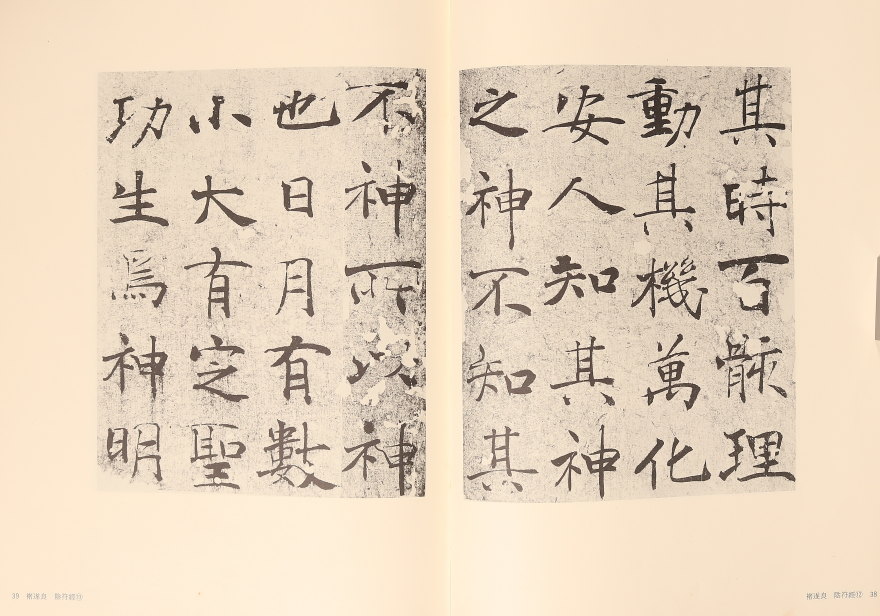 其時百骸理
動其機萬化
安人知其神
之神不知其
褚遂良 陰符經⑫ 38
不神所以神
也日月有數
小大有定聖
功生焉神明
39 褚遂良 陰符經⑬